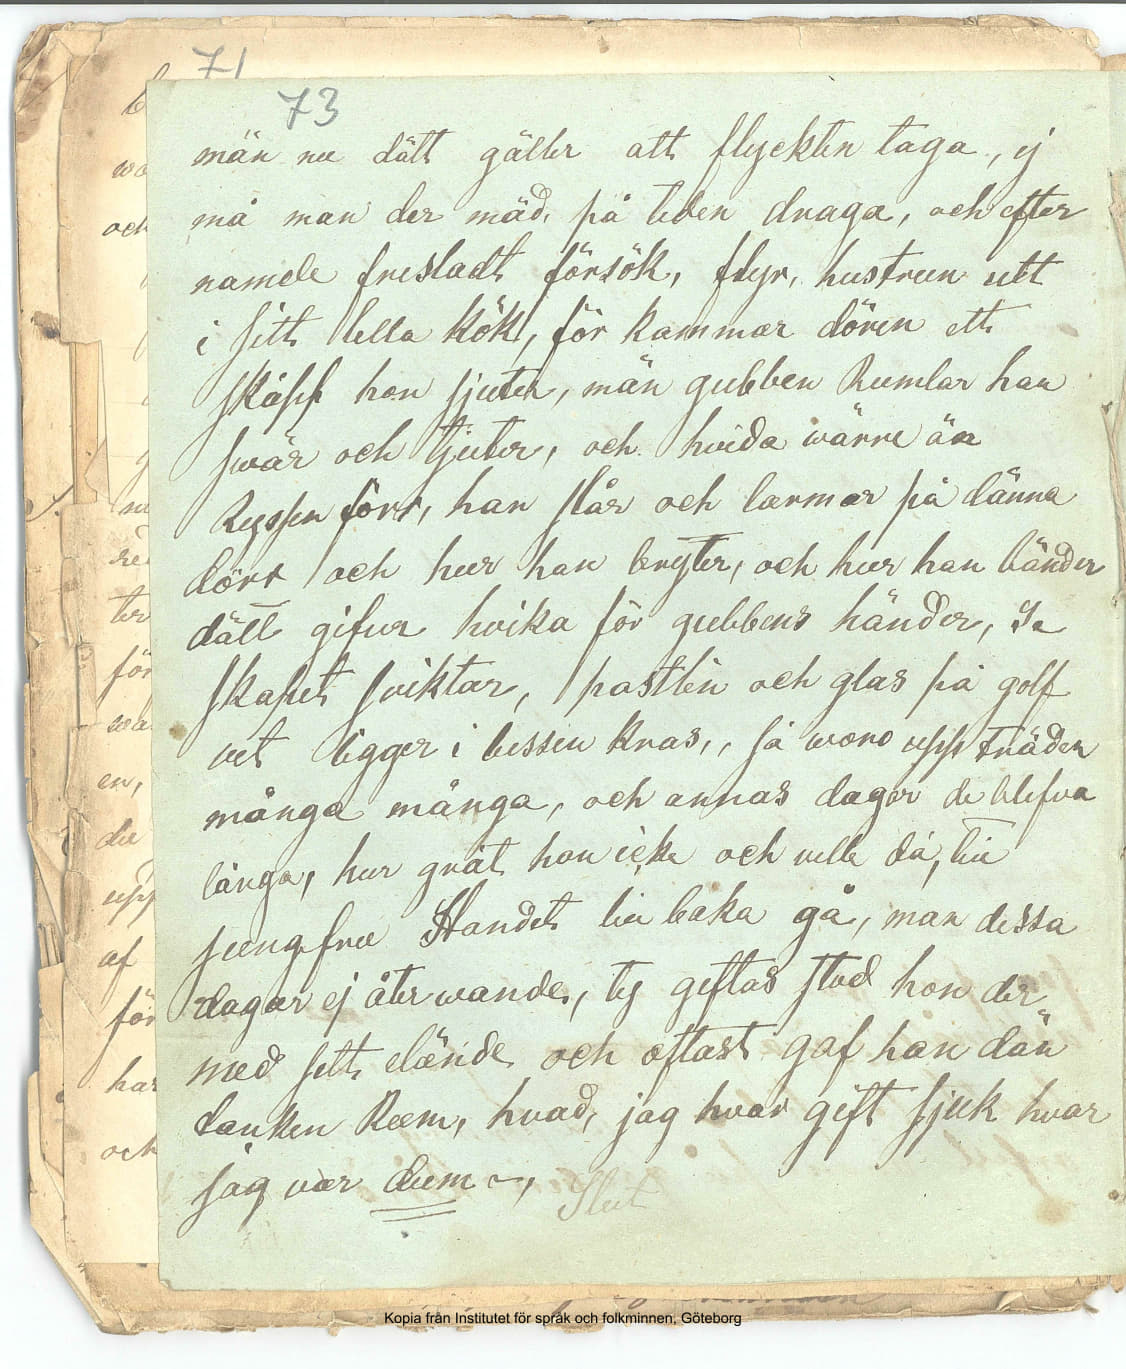 71
73
män nu dätt gäller att flyckten taga, ej
må man der mäd, på tiden draga, och efter
namde frusladt försök, flyr, hustrun utt
i sitt lilla kök, för kammar dören ett
skåpp hon sjuter, män gubben Rumlar han
swär och tjuter, och hvida wärre än
Ryssen förr, han slår och larmar på dänna
dörr och hur han bryter, och hur han bänder
dätt gifver hvika för gubbens händer,
skapet sviktar, postlin och glas på golf
vet ligger i bessen kras, så woro upp träden
många många, och annas dagar de blefva
långa, hur gråt hon icke och ville då, till
jungfru Standet till baka gå, man dessa
dagar ej åter wande, ty giftas stod hon der
med sitt elände och oftast gaf han dän
tanken Rum, hvad, jag hvar gift sjuk hvar
jag var dum ~,
Slut
och
en,
du
upp
af
för
och
Kopia från Institutet för språk och folkminnen, Göteborg